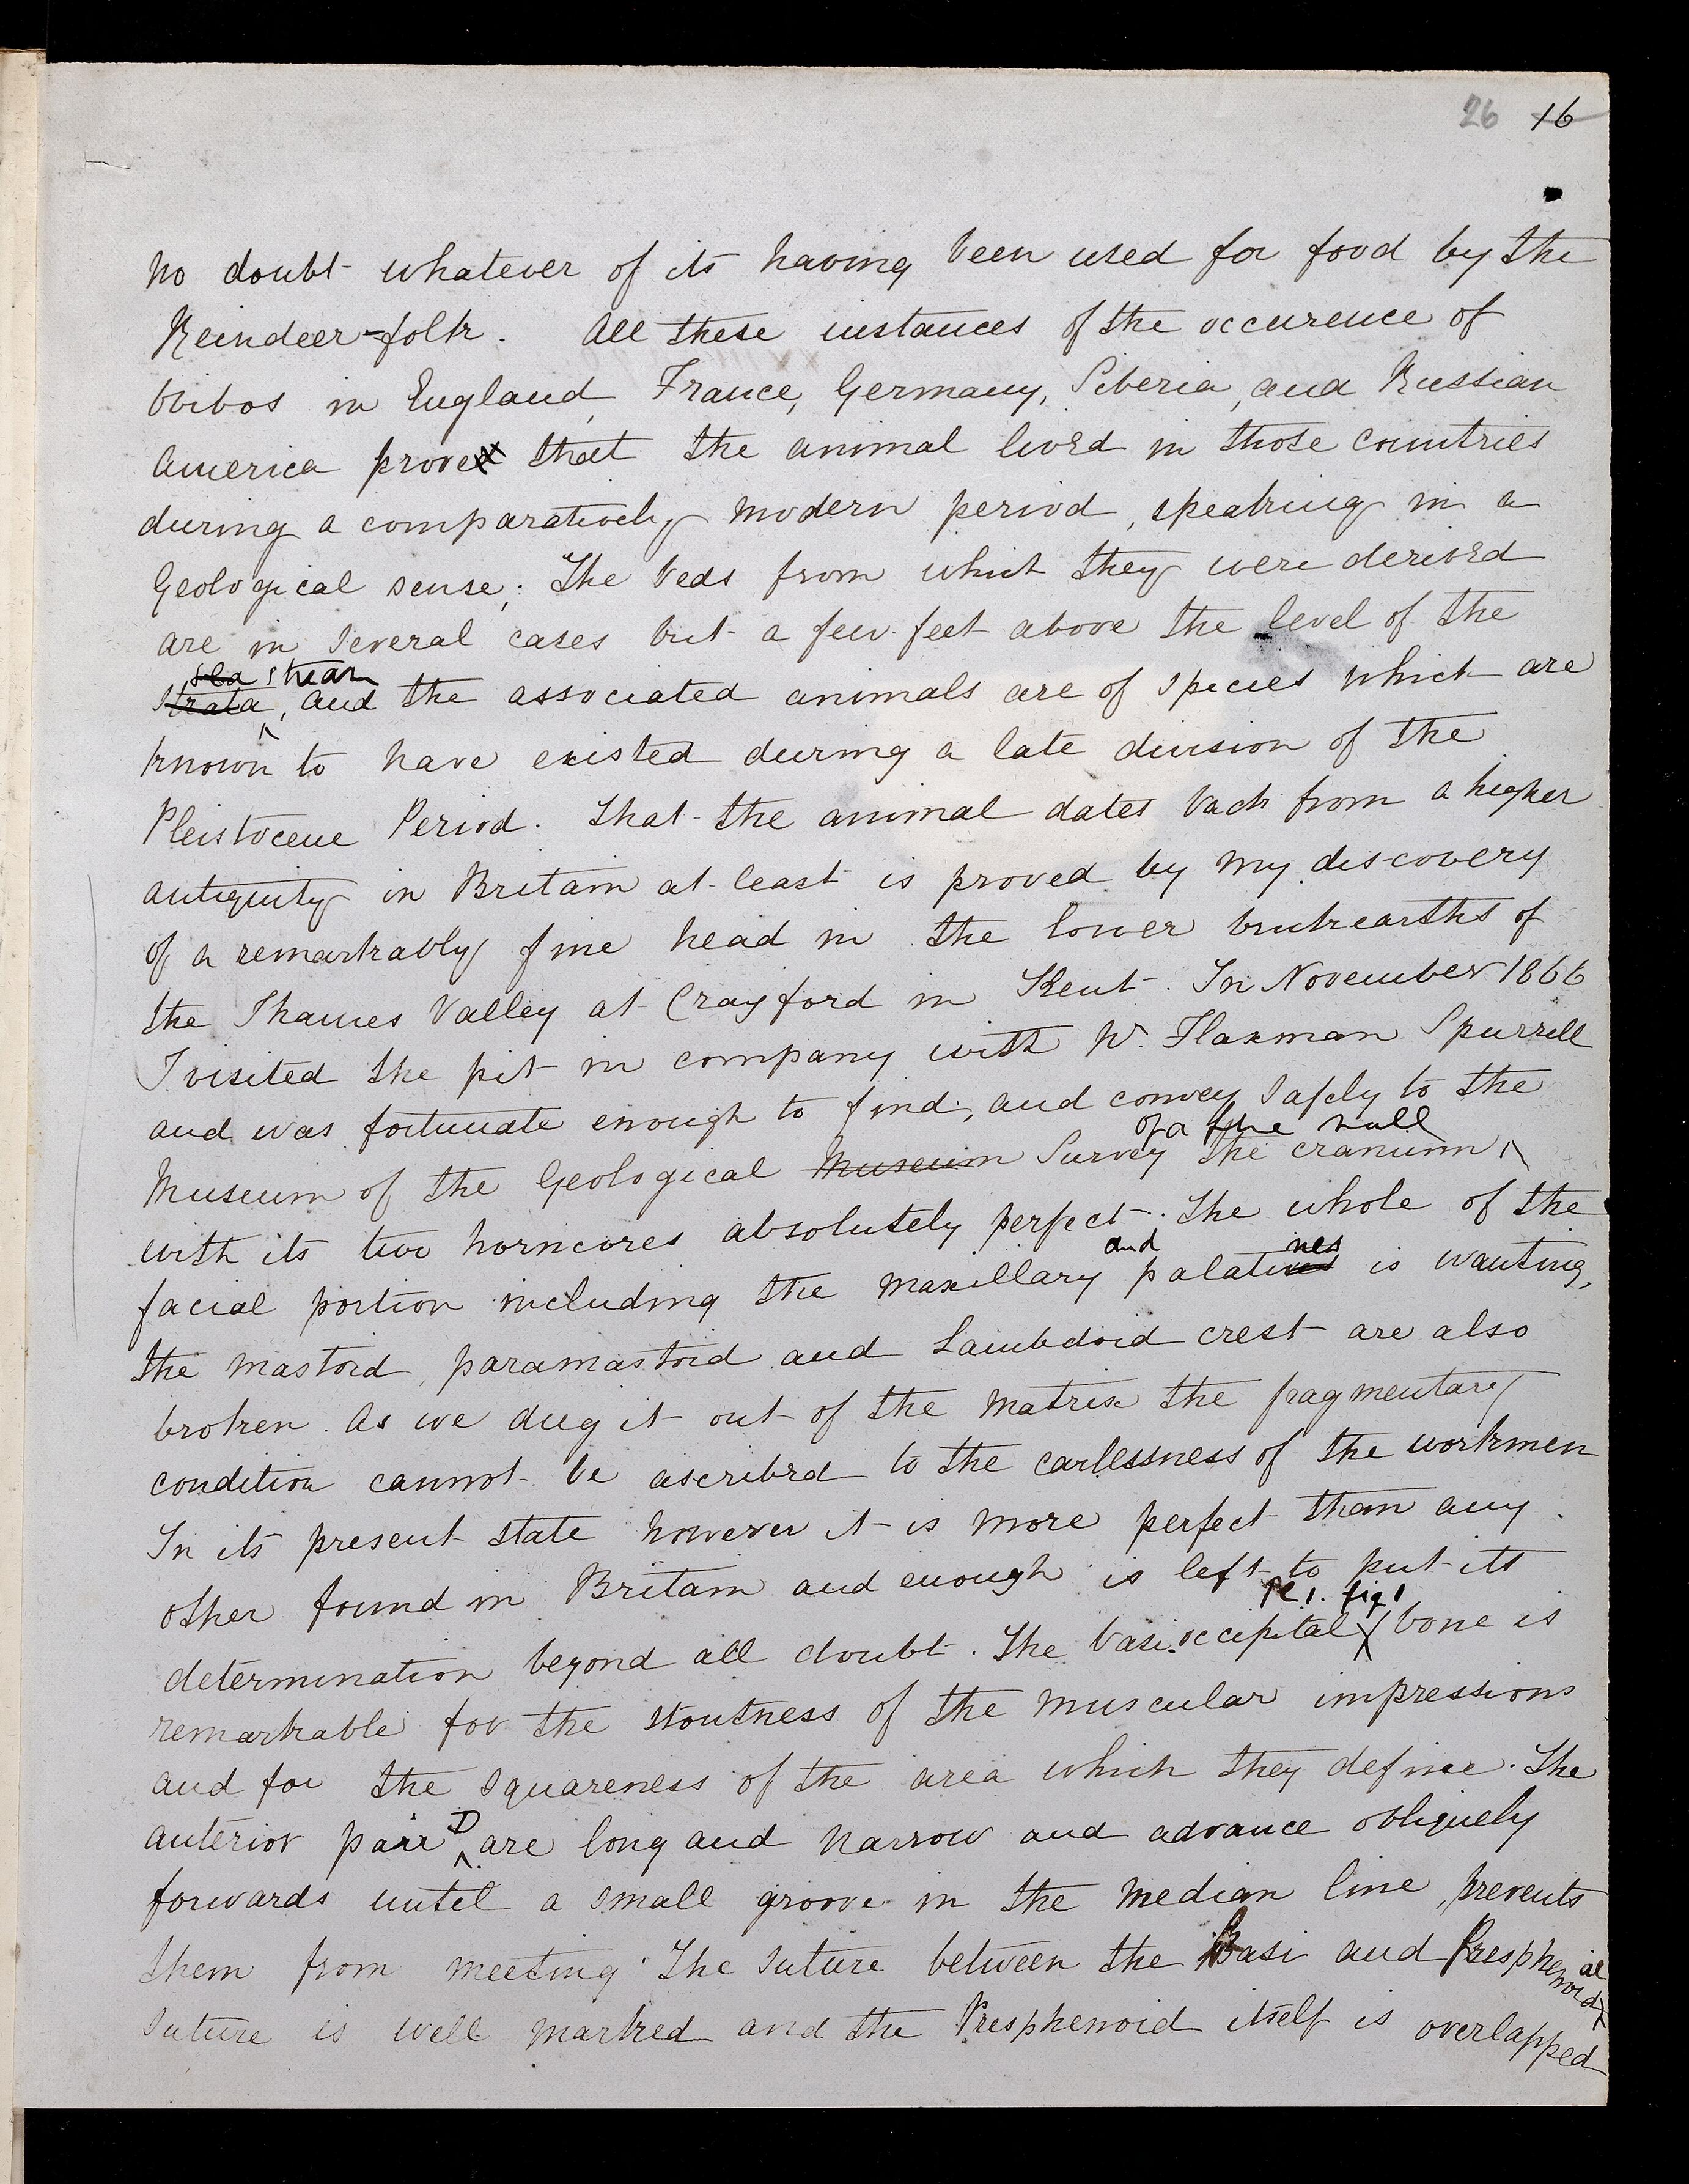 26 16
no doubt whatever of its having been used for food by the
Reindeer-folk. All these instances of the occurence of
Ovibos in England, France, Germany, Siberia, and Russian
America prove that the animal lived in those countries
during a comparatively modern period, speaking in a
Geological sense; The beds from which they were derived
are in several cases but a few feet above the level of the
sea stream
strata, and the associated animals are of species which are
known to have existed during a late division of the
Pleistocene Period. That the animal dates back from a higher
antiquity in Britain at least is proved by my discovery
of a remarkably fine head in the lower brickearths of
the Thames Valley at Crayford in Kent. In November 1866
I visited the pit in company with W. Flaxman Spurrell
and was fortunate enough to find, and convey safely to the
of a fine
Museum of the Geological Museum Survey the cranium
with its two horncores absolutely perfect. The whole of the
and nes
facial portion including the maxillary palatines is wanting,
the mastoid, paramastoid and Lambdoid crest are also
broken. As we dug it out of the matrix the fragmentary
condition cannot be ascribed to the carlessness of the workmen
In its present state however it is more perfect than any
other found in Britain and enough is left to put its
Pl 1. fig 1
determination beyond all doubt. The basioccipital bone is
remarkable for the stoutness of the muscular impressions
and for the squareness of the area which they define. The
anterior pair D are long and narrow and advance obliquely
forwards until a small groove in the median line, prevents
them from meeting. The suture between the Basi and Presphenoid al
suture is well marked and the Presphenoid itself is overlapped